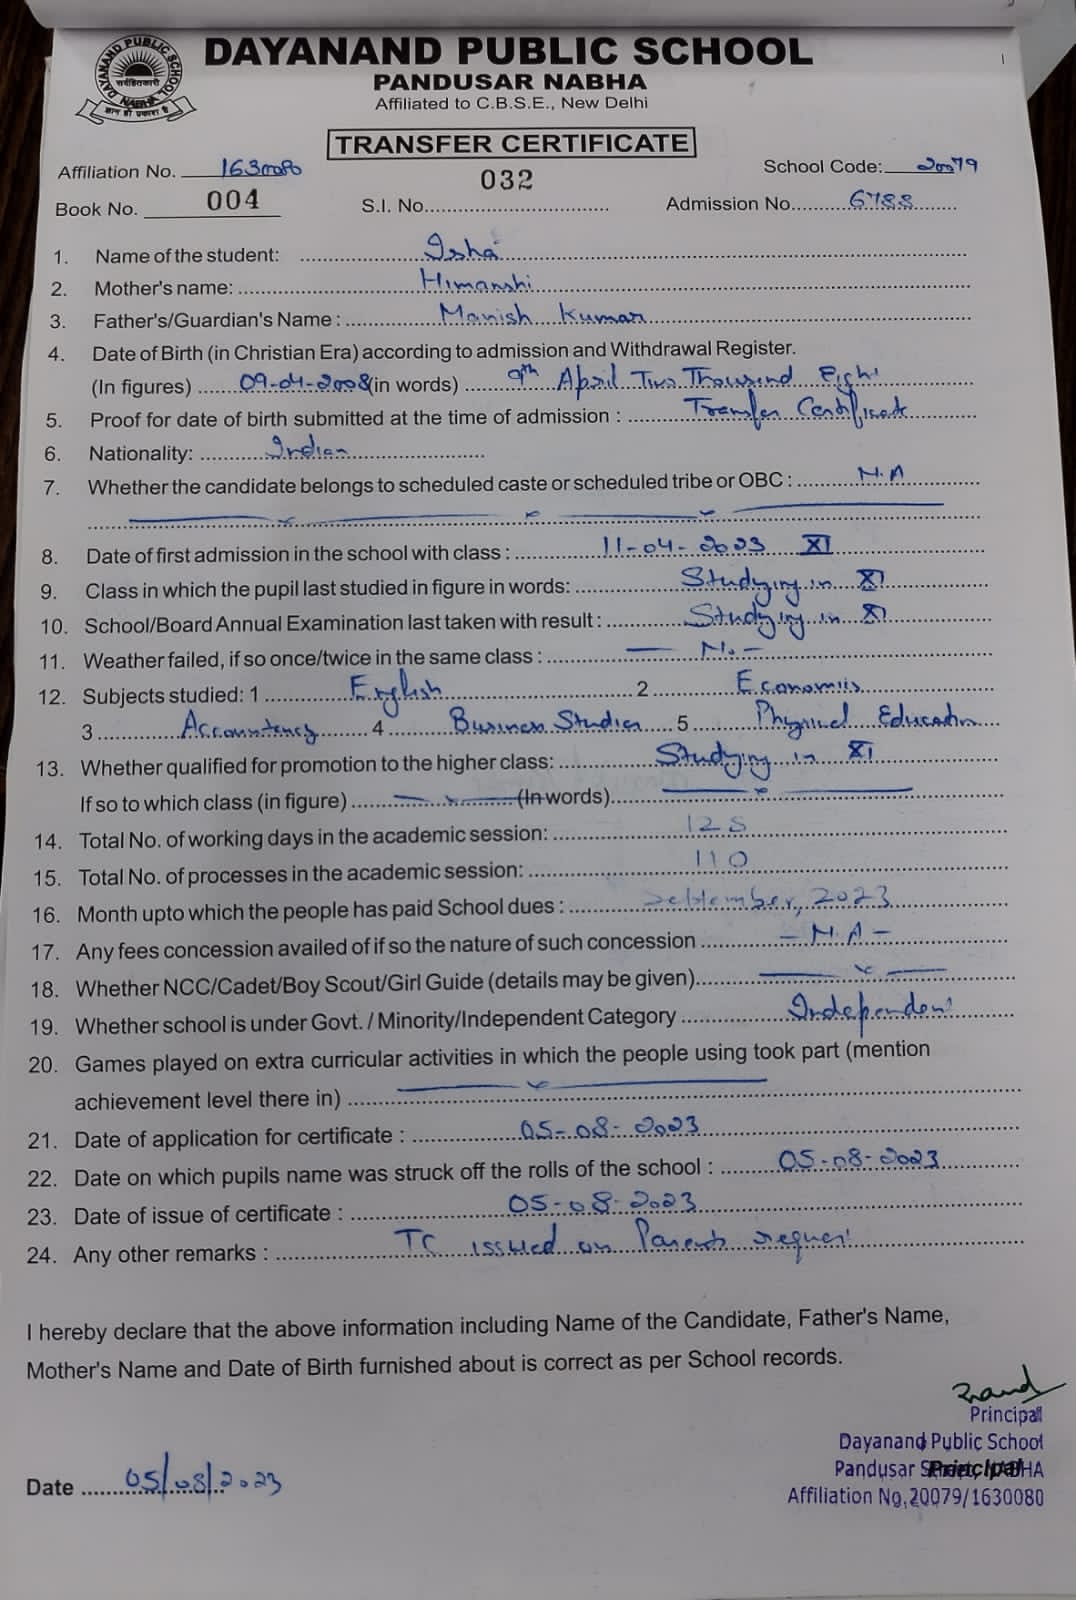 DAYANAND PUBLIC SCHOOL
DAYANAND PUBLIC SCHOOL
NABHA
PANDUSAR NABHA
Affiliated to C.B.S.E., New Delhi
TRANSFER CERTIFICATE
Affiliation No. 1630080 School Code: 20079
032
Book No. 004 S.I. No. Admission No. 6788
1. Name of the student: Isha
2. Mother's name: Himanshi
3. Father's/Guardian's Name : Manish Kumar
4. Date of Birth (in Christian Era) according to admission and Withdrawal Register.
(In figures) 09-04-2008 (in words) 9th April Two Thousand Eight
5. Proof for date of birth submitted at the time of admission : Transfer Certificate
6. Nationality: Indian
7. Whether the candidate belongs to scheduled caste or scheduled tribe or OBC : N.A
8. Date of first admission in the school with class : 11-04-2023 XI
9. Class in which the pupil last studied in figure in words: Studying in XI
10. School/Board Annual Examination last taken with result : Studying in XI
11. Weather failed, if so once/twice in the same class : — No —
12. Subjects studied: 1 English 2 Economics
3 Accountancy 4 Business Studies 5 Physical Education
13. Whether qualified for promotion to the higher class: Studying in XI
If so to which class (in figure) (In words)
14. Total No. of working days in the academic session: 125
15. Total No. of processes in the academic session: 110
16. Month upto which the people has paid School dues : September, 2023
17. Any fees concession availed of if so the nature of such concession - N.A -
18. Whether NCC/Cadet/Boy Scout/Girl Guide (details may be given)
19. Whether school is under Govt. / Minority/Independent Category Independent
20. Games played on extra curricular activities in which the people using took part (mention
achievement level there in)
21. Date of application for certificate : 05-08-2023
22. Date on which pupils name was struck off the rolls of the school : 05-08-2023
23. Date of issue of certificate : 05-08-2023
24. Any other remarks : TC issued on Parents request
I hereby declare that the above information including Name of the Candidate, Father's Name,
Mother's Name and Date of Birth furnished about is correct as per School records.
Principal
Dayanand Public School
Pandusar Street, NABHA
Principal
Date 05/08/2023
Affiliation No.20079/1630080